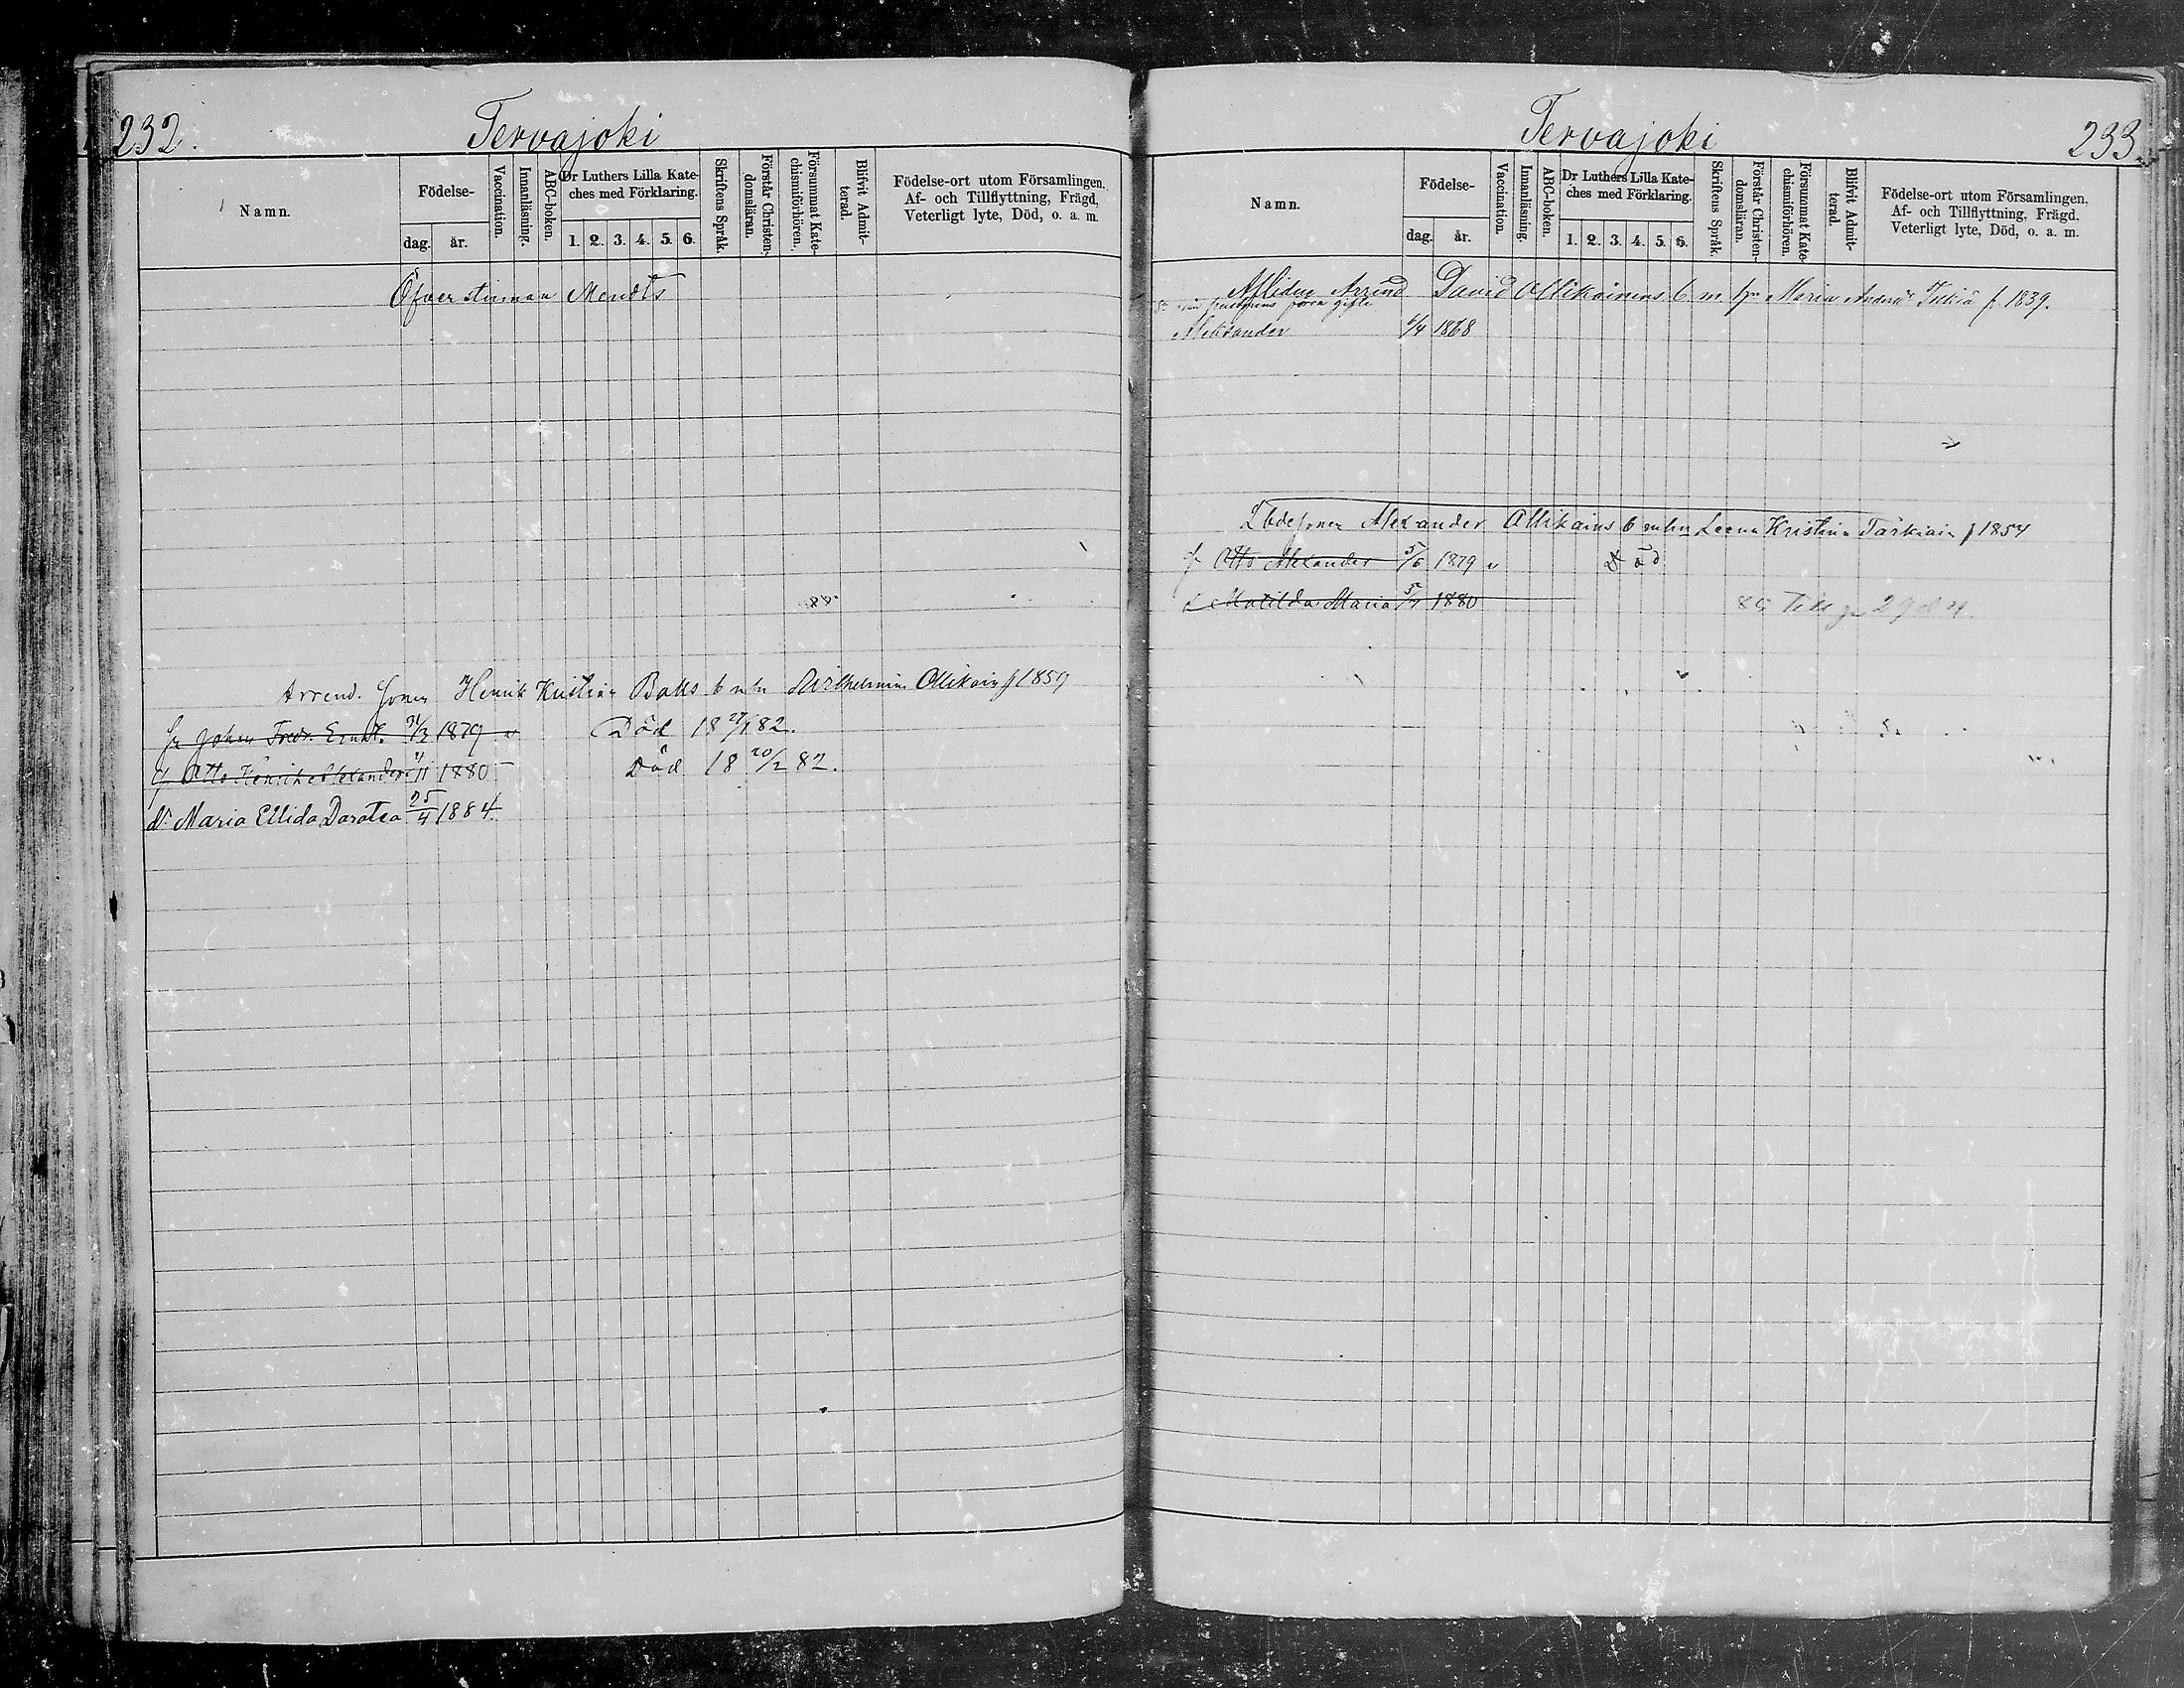 232.
Tervajoki
Namn.
Födelse-
dag.
år.
Vaccination.
Innanläsning.
ABC-boken.
Dr Luthers Lilla Kate-
ches med Förklaring.
1. 2. 3. 4. 5. 6.
Skriftens Språk.
Förstår Christen-
domsläran.
Försummat Kate-
chismiförhören.
Blifvit Admit-
terad.
Födelse-ort utom Församlingen.
Af- och Tillflyttning, Frägd,
Veterligt lyte, Död, o. a. m.
Öfverstinnan Mendts
Arrend. Henrik Kristian Balls b Ollikain f 1859
Johan Fredr. 31/3 1879 Död 18 27/1 82.
Otto Henrik Alexander 1880 Död 18 20/2 82.
dr Maria Ellida Daratea 25/4 1884.
Tervajoki
233.
Namn.
Födelse-
dag.
år.
Vaccination.
Innanläsning.
ABC-boken.
Dr Luthers Lilla Kate-
ches med Förklaring.
1. 2. 3. 4. 5. 6.
Skriftens Språk.
Förstår Christen-
domsläran.
Försummat Kate-
chismiförhören.
Blifvit Admit-
terad.
Födelse-ort utom Församlingen.
Af- och Tillflyttning, Frägd.
Veterligt lyte, Död, o. a. m.
Aflidne Arrend David Ollikainens b. m. hr Maria f. 1839.
förra gifte
Aleksander 6/4 1868
Alexander Ollikains b mhr Leena Kristina f 1854
Otto Alexander 5/6 1879 Död
Matilda Maria 5/7 1880